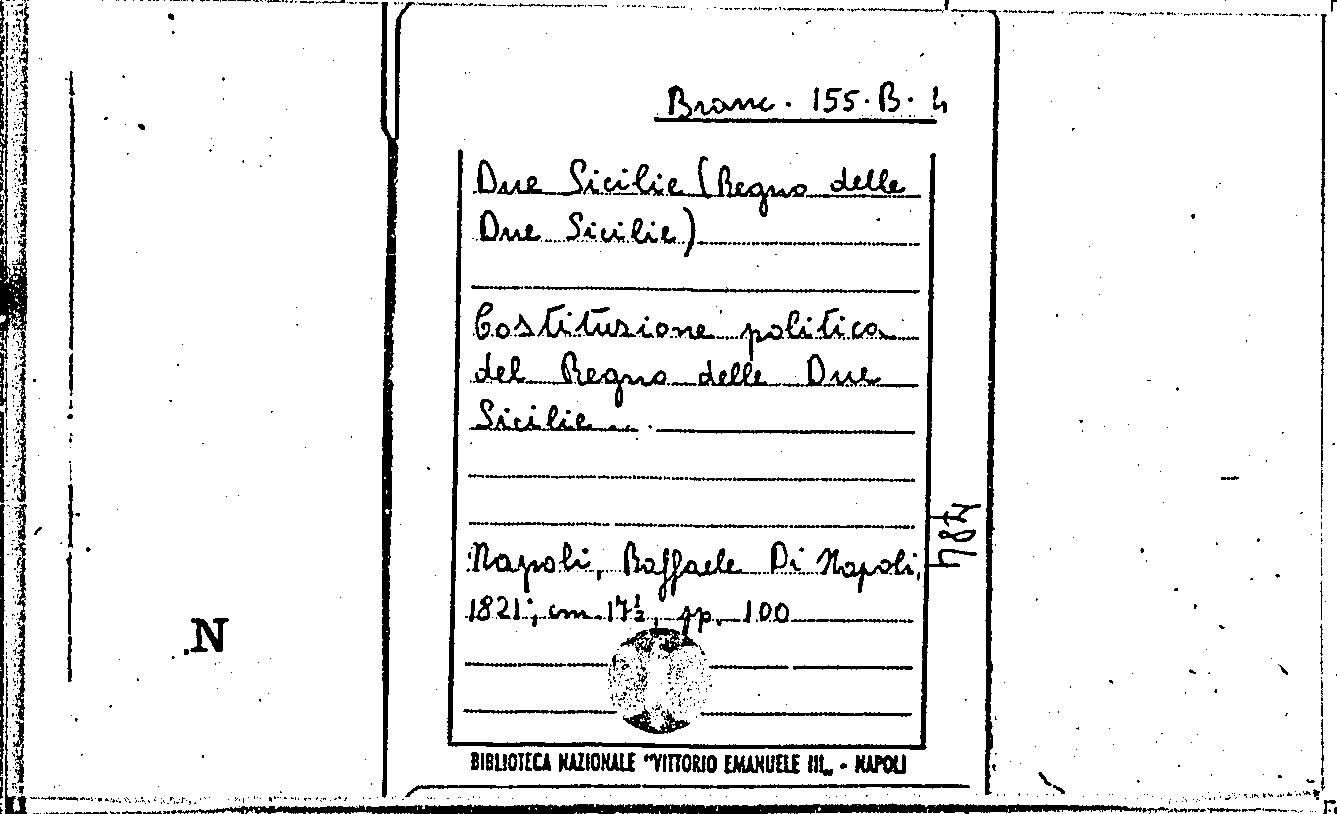 Branc. 155. B. 4
Due Sicilie (Regno delle
Due Sicilie)
Costituzione politica
del Regno delle Due
Sicilie...
Napoli, Raffaele Di Napoli,
1821; cm. 17½, pp. 100
N
BIBLIOTECA NAZIONALE "VITTORIO EMANUELE III„ - NAPOLI